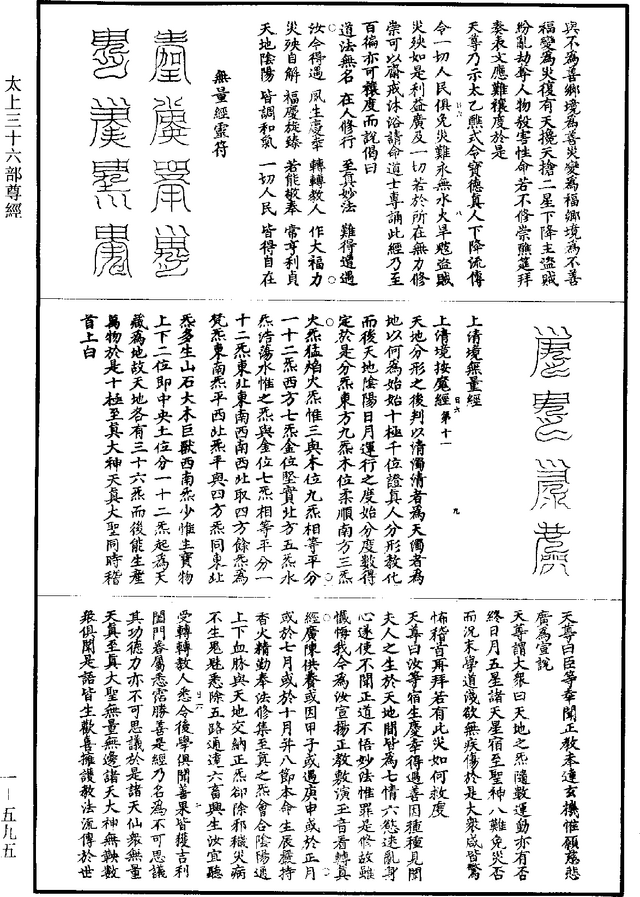 太上三十六部尊經
與不為善鄉境為善災變為福鄉境為不善
福變為災復有天攙天搶二星下降主盜賊
紛亂劫奪人物殺害性命若不修崇醮筵拜
奏表文應難禳度於是
天尊乃示太乙醮式令寶德真人下降流傳
令一切人民俱免災難永無水火旱蝗盜賊
災殃如是利益廣及一切若於所在無力修
崇可以齋戒沐浴請命道士專誦此經乃至
百徧亦可禳度而說偈曰
道法無名 在人修行 至真妙法 難得遭遇
汝令得遇 夙生慶幸 轉轉教人 作大福力
災殃自解 福慶旋臻 若能敬奉 常亨利貞
天地陰陽 皆調和氣 一切人民 皆得自在
無量經靈符
上清境無量經
上清境按魔經 第十一
天地分形之後判以清濁清者為天濁者為
地以何為始始十極千位證真人分形教化
而後天地陰陽日月運行之度始分度數得
定於是分炁東方九炁木位柔順南方三炁
火炁猛焰火炁惟三與木位九炁相等平分
一十二炁西方七炁金位堅實北方五炁水
炁浩蕩水惟之炁與金位七炁相等平分一
十二炁東北東南西南西北取四方餘炁為
梵炁東南炁平西北炁平與四方炁同東北
炁多生山石大木巨獸西南炁少惟生寶物
上下二位即中央土位分一十二炁起為天
藏為地故天地各有三十六炁而後能生產
萬物於是十極至真大神天真大聖同時稽
首上白
天尊曰臣等幸聞正教未達玄機惟願慈悲
廣為宣說
天尊謂大眾曰天地之炁隨數運動亦有否
終日月五星諸天星宿至聖神八難免災否
而況末學道淺欲無疾傷於是大眾咸皆驚
怖稽首再拜若有此災如何救度
天尊曰汝等宿生慶幸得遇善因種種見聞
夫人之生於天地間皆為七情六慾迷亂身
心遂使不聞正道不悟妙法惟罪是修故雖
懺悔我今為汝宣揚正教敷演玉音看轉真
經廣陳供養或因甲子或遇庚申或於正月
或於七月或於十月并八節本命生辰嚴持
香火精勤奉法修集至真之炁會合陰陽通
上下血脉與天地交納正炁卻除邪穢災病
不生鬼魅悉除五路通達六畜興生汝宜聽
受轉轉教人悉令後學俱聞善果皆獲吉利
闔門眷屬悉霑勝善是經乃名為不可思議
其功德力亦不可思議於是諸天仙眾無量
天真至真大聖無量無邊諸天大神無鞅數
眾俱聞是語皆生歡喜擁護教法流傳於世
一－五九五